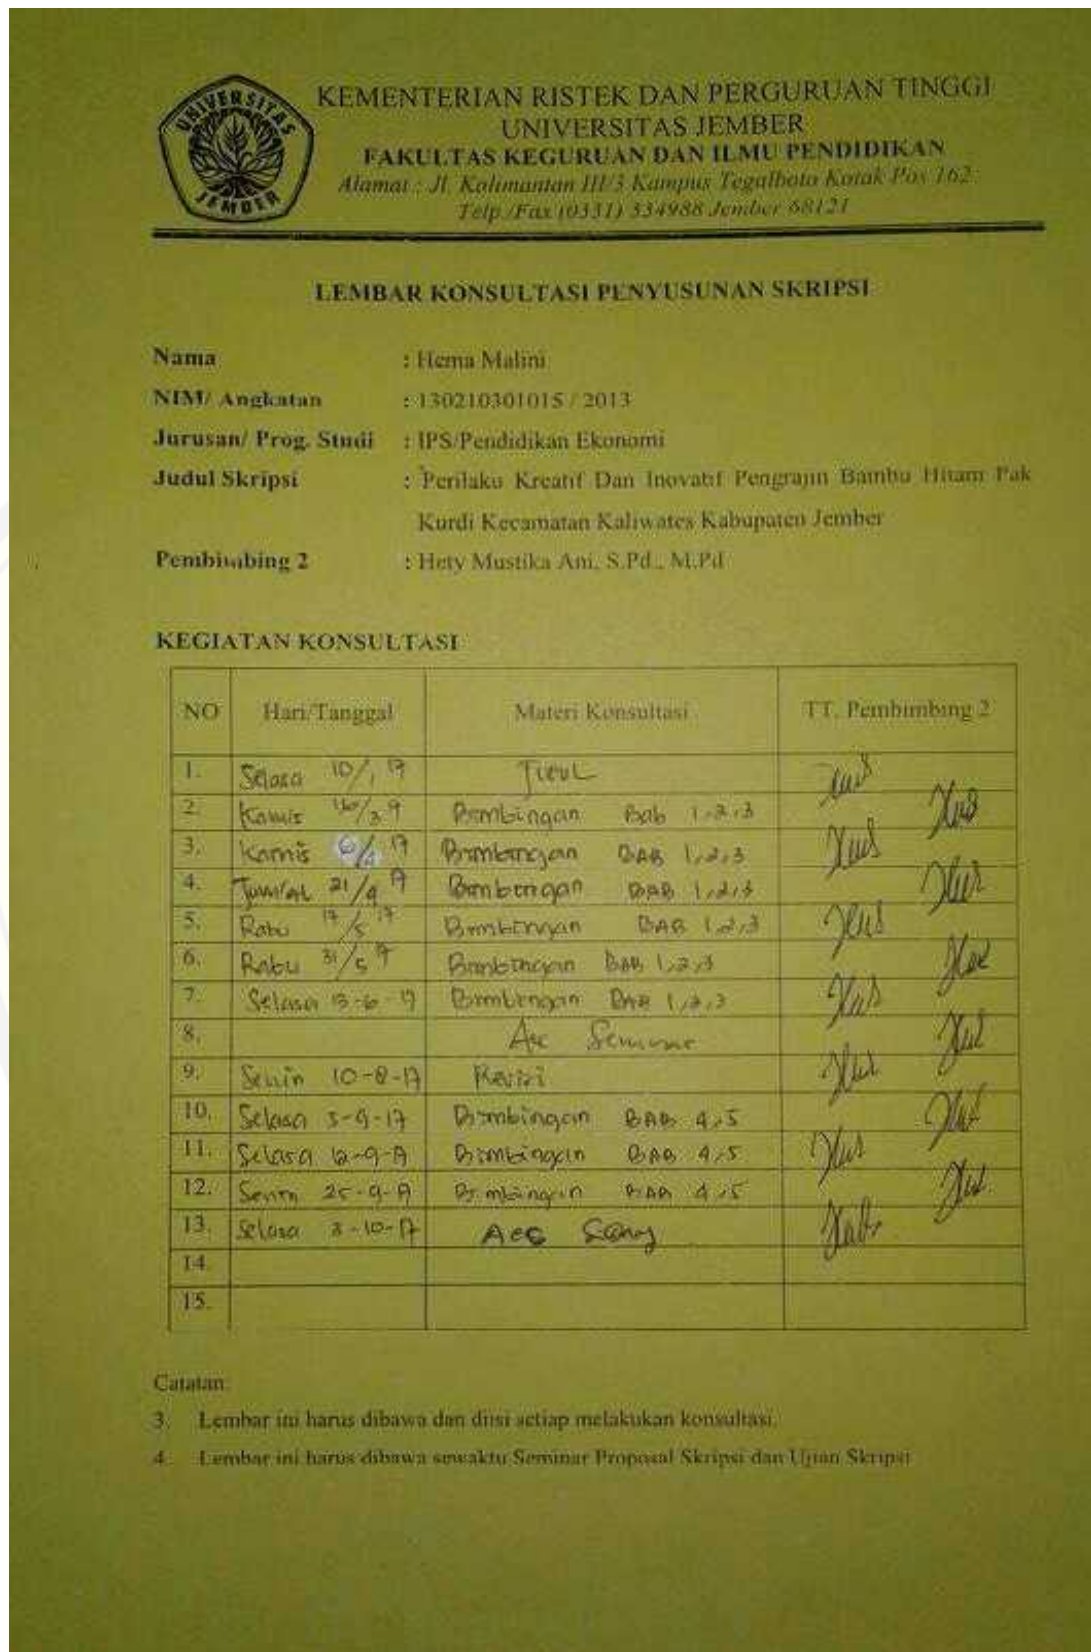 UNIVERSITAS
JEMBER
KEMENTERIAN RISTEK DAN PERGURUAN TINGGI
UNIVERSITAS JEMBER
FAKULTAS KEGURUAN DAN ILMU PENDIDIKAN
Alamat : Jl. Kalimantan III/3 Kampus Tegalboto Kotak Pos 162
Telp./Fax (0331) 334988 Jember 68121
LEMBAR KONSULTASI PENYUSUNAN SKRIPSI
Nama : Hema Malini
NIM/ Angkatan : 130210301015 / 2013
Jurusan/ Prog. Studi : IPS/Pendidikan Ekonomi
Judul Skripsi : Perilaku Kreatif Dan Inovatif Pengrajin Bambu Hitam Pak
Kurdi Kecamatan Kaliwates Kabupaten Jember
Pembimbing 2 : Hety Mustika Ani, S.Pd., M.Pd
KEGIATAN KONSULTASI
NO Hari/Tanggal Materi Konsultasi TT. Pembimbing 2
1. Selasa 10/1 17
2. Kamis 16/3 17 Bimbingan Bab 1,2,3
3. Kamis 17 Bimbingan BAB 1,2,3
4. Jum'at 21/4 17 Bimbingan BAB 1,2,3
5. Rabu 17/5 17 Bimbingan BAB 1,2,3
6. Rabu 31/5 17 Bimbingan BAB 1,2,3
7. Selasa 13-6-17 Bimbingan BAB 1,2,3
8. Acc Seminar
9. Senin 10-8-17 Revisi
10. Selasa 5-9-17 Bimbingan BAB 4,5
11. Selasa 12-9-17 Bimbingan BAB 4,5
12. Senin 25-9-17 Bimbingan BAB 4,5
13. Selasa 3-10-17 Acc
14.
15.
Catatan:
3. Lembar ini harus dibawa dan diisi setiap melakukan konsultasi.
4. Lembar ini harus dibawa sewaktu Seminar Proposal Skripsi dan Ujian Skripsi